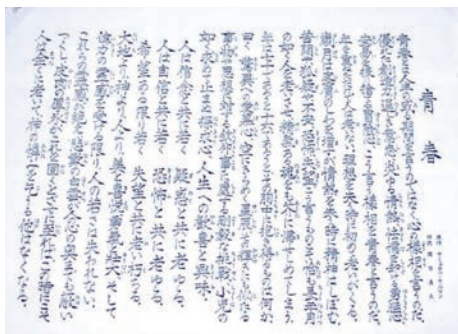 青春
原作 サミエル・ウルマン
邦訳 岡田義夫
青春とは人生の或る期間を言うのではなく心の様相を言うのだ。
優れた創造力、逞しき意志、炎ゆる情熱、怯懦を却ける勇猛心、
安易を振り捨てる冒険心、こう言う様相を青春と言うのだ。
年を重ねただけで人は老いない。理想を失う時に初めて老いがくる。
歳月は皮膚のしわを増すが情熱を失う時に精神はしぼむ。
苦悶や、狐疑や、不安、恐怖、失望、こう言うものこそ恰も長年月
の如く人を老いさせ、精気ある魂をも芥に帰せしめてしまう。
年は七十であろうと十六であろうと、その胸中に抱き得るものは何か。
曰く驚異への愛慕心、空にきらめく星辰、その輝きにも似たる
事物や思想に対する欽仰、事に処する剛毅な挑戦、小児の
如く求めて止まぬ探求心、人生への歓喜と興味。
人は信念と共に若く 疑惑と共に老ゆる。
人は自信と共に若く 恐怖と共に老ゆる。
希望ある限り若く 失望と共に老い朽ちる。
大地より、神より、人より、美と喜悦、勇気と壮大、そして
偉力の霊感を受ける限り人の若さは失われない。
これらの霊感が絶え、悲歎の白雪が人の心の奥までも蔽い
つくし、皮肉の厚氷がこれを固くとざすに至ればこの時にこそ
人は全く老いて神の憐れみを乞うる他はなくなる。